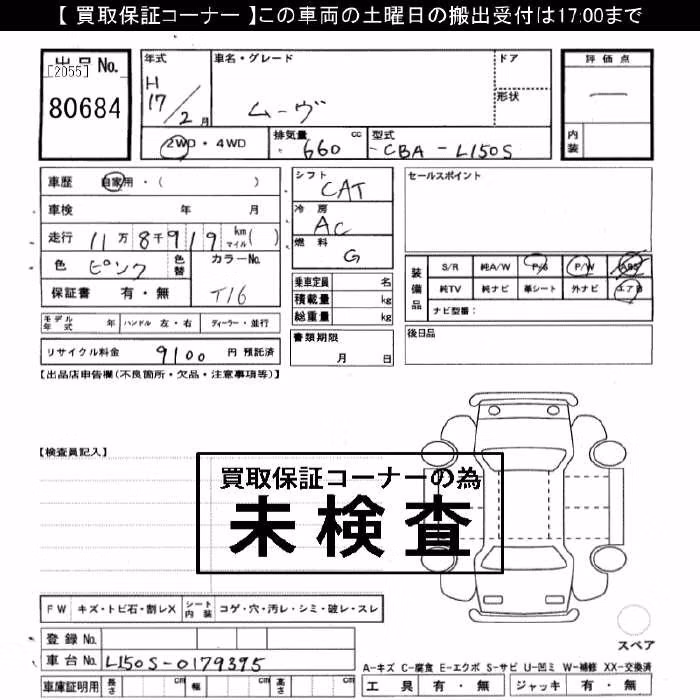 【 買取保証コーナー 】この車両の土曜日の搬出受付は17:00まで
出品No.
[2055]
80684
年式
H
17/2月
車名・グレード
ムーヴ
ドア
形状
評価点
一
内装
2WD・4WD
排気量 cc
660
型式
CBA - L150S
車歴 自家用・( )
車検 年 月
走行 11万8千919 km マイル( )
色 ピンク 色替
カラーNo.
T16
保証書 有・無
シフト
CAT
冷房
AC
燃料
G
乗車定員 名
積載量 kg
総重量 kg
セールスポイント
装備品
S/R 純A/W P/S P/W ABS
純TV 純ナビ 革シート 外ナビ エアB
ナビ型番:
モデル年式 年 ハンドル 左・右 ディーラー・並行
書類期限
月 日
後日品
リサイクル料金 9100 円 預託済
【出品店申告欄(不良箇所・欠品・注意事項等)】
【検査員記入】
買取保証コーナーの為
未検査
FW キズ・トビ石・割レX シート内装 コゲ・穴・汚レ・シミ・破レ・スレ
登録No.
車台No. L150S-0179395
車庫証明用 長さ cm 幅 cm 高さ cm
スペア
A-キズ C-腐食 E-エクボ S-サビ U-凹ミ W-補修 XX-交換済
工具 有・無 ジャッキ 有・無